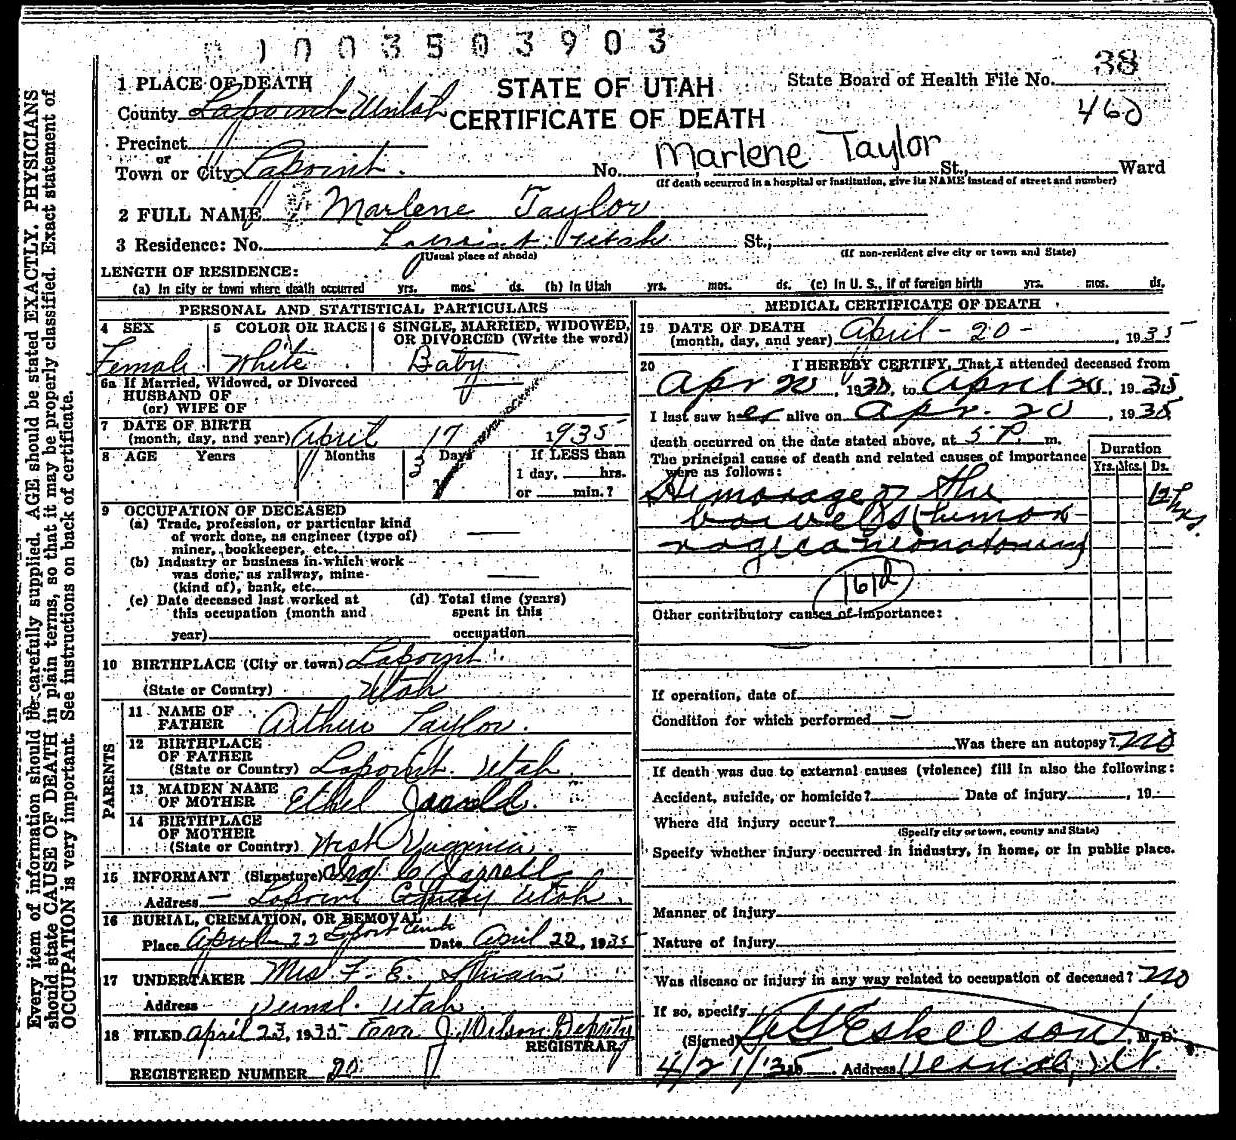 0100350 3903
38
1 PLACE OF DEATH
STATE OF UTAH
State Board of Health File No.
County Lapoint Uintah
CERTIFICATE OF DEATH
460
Precinct
or
Town or City Lapoint. No. Marlene Taylor St., Ward
(If death occurred in a hospital or institution, give its NAME instead of street and number)
2 FULL NAME Marlene Taylor
3 Residence: No. Lapoint Utah St.,
(Usual place of abode) (If non-resident give city or town and State)
LENGTH OF RESIDENCE:
(a) In city or town where death occurred yrs. mos. ds. (b) In Utah yrs. mos. ds. (c) In U. S., if of foreign birth yrs. mos. ds.
PERSONAL AND STATISTICAL PARTICULARS
4 SEX 5 COLOR OR RACE 6 SINGLE, MARRIED, WIDOWED, OR DIVORCED (Write the word)
Female White Baby
6a If Married, Widowed, or Divorced
HUSBAND OF
(or) WIFE OF
7 DATE OF BIRTH
(month, day, and year) April 17 1935
8 AGE Years Months Days If LESS than
3 1 day, hrs.
or min.?
9 OCCUPATION OF DECEASED
(a) Trade, profession, or particular kind
of work done, as engineer (type of)
miner, bookkeeper, etc.
(b) Industry or business in which work
was done, as railway, mine
(kind of), bank, etc.
(c) Date deceased last worked at (d) Total time (years)
this occupation (month and spent in this
year) occupation
10 BIRTHPLACE (City or town) Lapoint
(State or Country) Utah
PARENTS
11 NAME OF
FATHER Arthur Taylor.
12 BIRTHPLACE
OF FATHER
(State or Country) Lapoint. Utah.
13 MAIDEN NAME
OF MOTHER Ethel
14 BIRTHPLACE
OF MOTHER
(State or Country) West Virginia.
15 INFORMANT (Signature)
Address Lapoint Utah.
16 BURIAL, CREMATION, OR REMOVAL
Place April 22 Date April 22, 1935
17 UNDERTAKER Mrs F. E.
Address Vernal. Utah.
18 FILED April 23, 1935 Eva J. Wilson Deputy
REGISTRAR
REGISTERED NUMBER 20
MEDICAL CERTIFICATE OF DEATH
19 DATE OF DEATH
(month, day, and year) April - 20 - , 1935
20 I HEREBY CERTIFY, That I attended deceased from
Apr 20, 1935, to April 20, 1935
I last saw her alive on Apr. 20, 1935
death occurred on the date stated above, at 5 P. m.
The principal cause of death and related causes of importance
were as follows:
Duration
Yrs. Mos. Ds.
Hemorage of the 12 hrs.
bowels (hemor-
ragica neonatorum)
161d
Other contributory causes of importance:
If operation, date of
Condition for which performed
Was there an autopsy? no
If death was due to external causes (violence) fill in also the following:
Accident, suicide, or homicide? Date of injury , 19
Where did injury occur?
(Specify city or town, county and State)
Specify whether injury occurred in industry, in home, or in public place.
Manner of injury
Nature of injury
Was disease or injury in any way related to occupation of deceased? no
If so, specify
(Signed) Eskelson M. D.
4/21/35 Address Vernal, Ut.
Every item of information should be carefully supplied. AGE should be stated EXACTLY. PHYSICIANS
should state CAUSE OF DEATH in plain terms, so that it may be properly classified. Exact statement of
OCCUPATION is very important. See instructions on back of certificate.